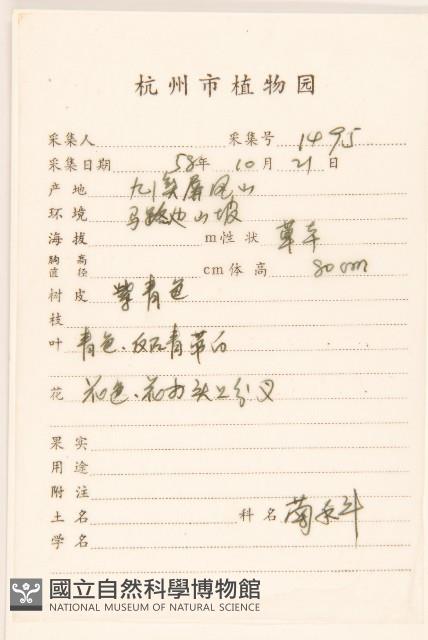 杭州市植物园
采集人 采集号 1495
采集日期 58年 10月 21日
产地 九溪屏风山
环境 马路边山坡
海拔 m 性状 草本
胸高直径 cm 体高 80cm
树皮 紫青色
枝
叶 青色、反面青带白
花 花色、花为头上分叉
果实
用途
附注
土名 科名 菊科
学名
國立自然科學博物館
NATIONAL MUSEUM OF NATURAL SCIENCE